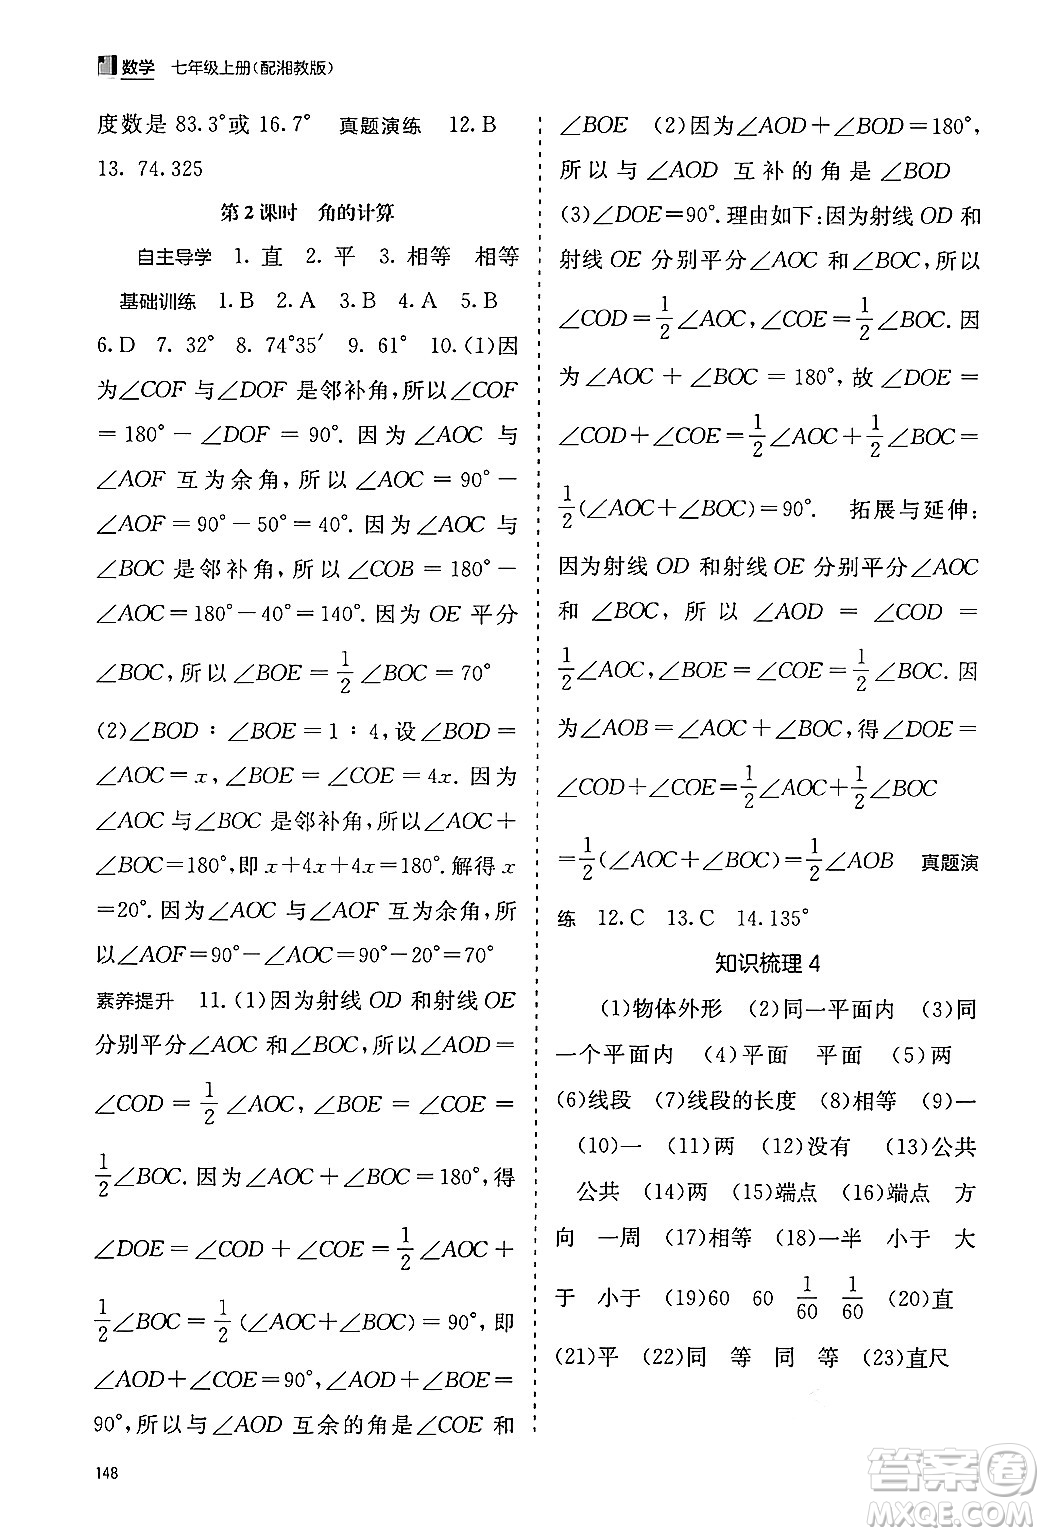 数学 七年级上册(配湘教版)
度数是 83.3°或 16.7° 真题演练 12. B
13. 74.325
第 2 课时 角的计算
自主导学 1. 直 2. 平 3. 相等 相等
基础训练 1. B 2. A 3. B 4. A 5. B
6. D 7. 32° 8. 74°35′ 9. 61° 10. (1)因
为∠COF 与∠DOF 是邻补角,所以∠COF
= 180° − ∠DOF = 90°. 因为 ∠AOC 与
∠AOF 互为余角,所以 ∠AOC = 90° −
∠AOF = 90° − 50° = 40°. 因为 ∠AOC 与
∠BOC 是邻补角,所以 ∠COB = 180° −
∠AOC=180°−40°=140°. 因为 OE 平分
∠BOC,所以∠BOE=1/2∠BOC=70°
(2)∠BOD : ∠BOE = 1 : 4,设∠BOD =
∠AOC=x,∠BOE=∠COE=4x. 因为
∠AOC 与∠BOC 是邻补角,所以∠AOC+
∠BOC=180°,即 x+4x+4x=180°. 解得 x
=20°. 因为∠AOC 与∠AOF 互为余角,所
以∠AOF=90°−∠AOC=90°−20°=70°
素养提升 11. (1)因为射线 OD 和射线 OE
分别平分∠AOC 和∠BOC,所以∠AOD=
∠COD = 1/2∠AOC,∠BOE = ∠COE =
1/2∠BOC. 因为∠AOC+∠BOC=180°,得
∠DOE = ∠COD + ∠COE = 1/2∠AOC +
1/2∠BOC = 1/2 (∠AOC+∠BOC) = 90°,即
∠AOD+∠COE=90°,∠AOD+∠BOE=
90°,所以与∠AOD 互余的角是∠COE 和
∠BOE (2)因为∠AOD+∠BOD=180°,
所以与∠AOD 互补的角是∠BOD
(3)∠DOE=90°. 理由如下:因为射线 OD 和
射线 OE 分别平分∠AOC 和∠BOC,所以
∠COD=1/2∠AOC,∠COE=1/2∠BOC. 因
为 ∠AOC + ∠BOC = 180°,故 ∠DOE =
∠COD+∠COE=1/2∠AOC+1/2∠BOC=
1/2(∠AOC+∠BOC)=90°. 拓展与延伸:
因为射线 OD 和射线 OE 分别平分∠AOC
和 ∠BOC, 所以 ∠AOD = ∠COD =
1/2∠AOC,∠BOE=∠COE=1/2∠BOC. 因
为∠AOB=∠AOC+∠BOC,得∠DOE=
∠COD+∠COE=1/2∠AOC+1/2∠BOC
=1/2(∠AOC+∠BOC)=1/2∠AOB 真题演
练 12. C 13. C 14. 135°
知识梳理 4
(1)物体外形 (2)同一平面内 (3)同
一个平面内 (4)平面 平面 (5)两
(6)线段 (7)线段的长度 (8)相等 (9)一
(10)一 (11)两 (12)没有 (13)公共
公共 (14)两 (15)端点 (16)端点 方
向 一周 (17)相等 (18)一半 小于 大
于 小于 (19)60 60 1/60 1/60 (20)直
(21)平 (22)同 等 同 等 (23)直尺
148
答案圈
MXQE.COM